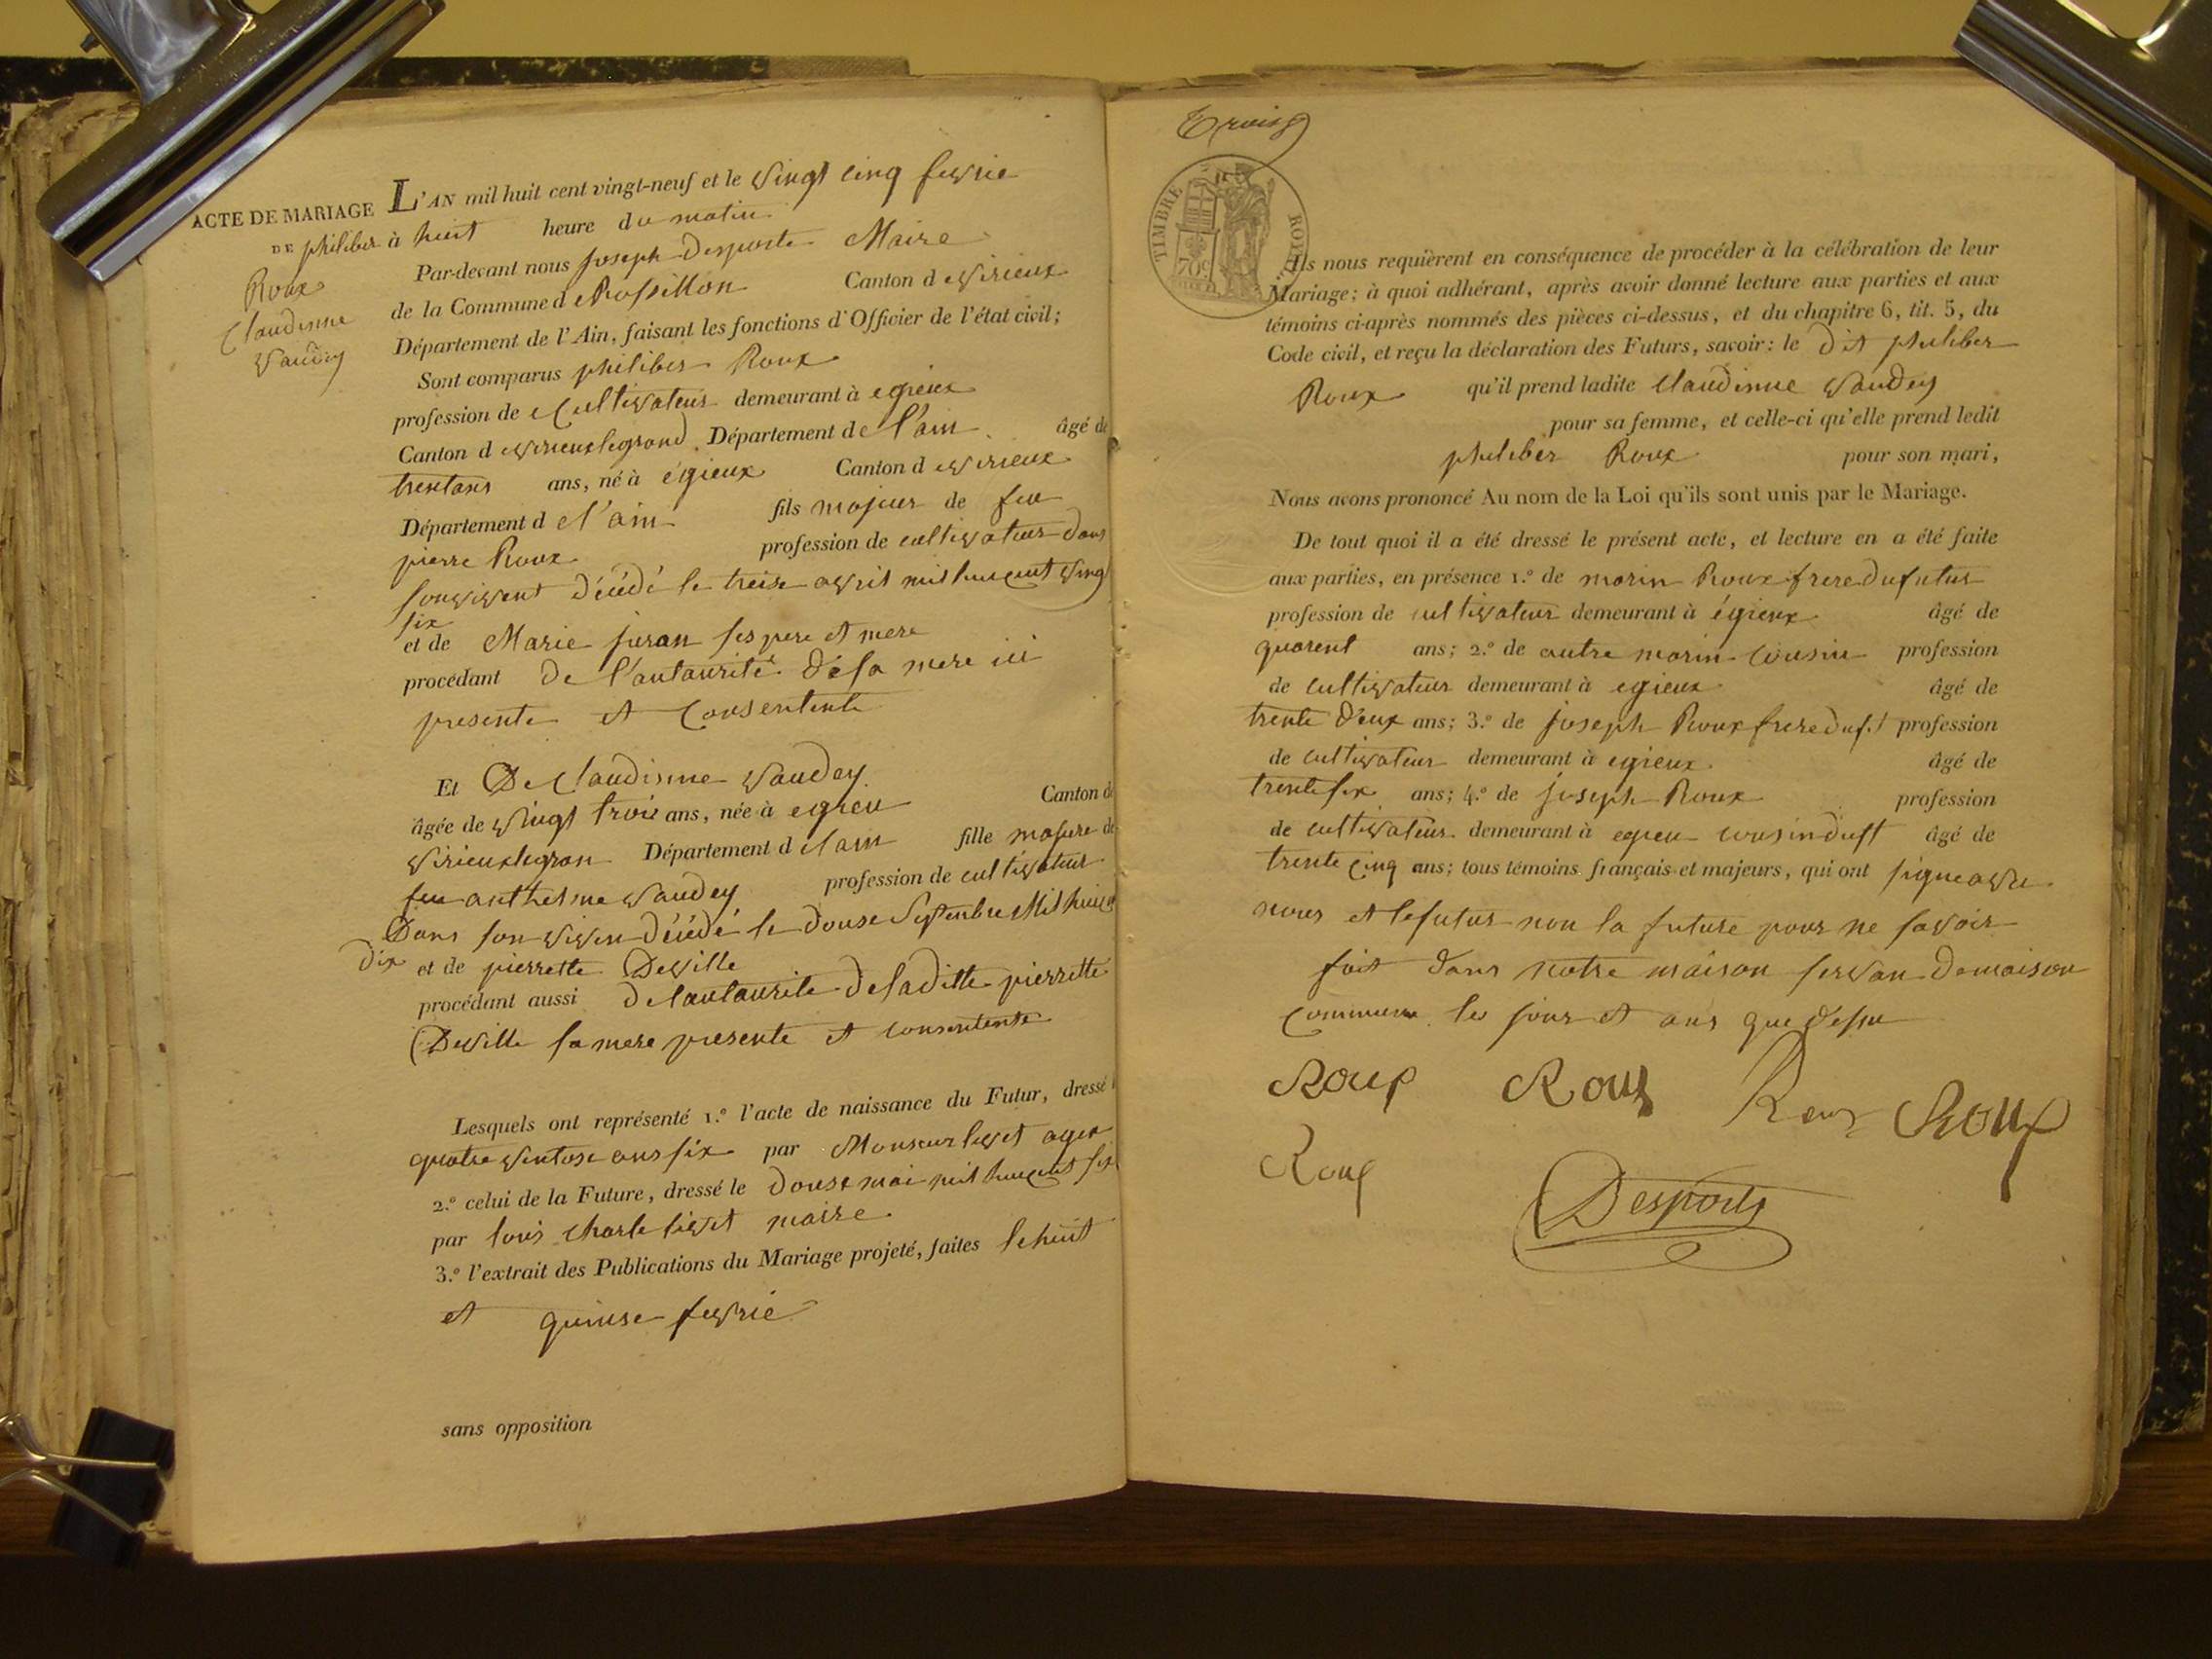 ACTE DE MARIAGE
DE philiber
Roux
Claudinne
Vaudey
L'AN mil huit cent vingt-neuf et le vingt cinq fevrie
à huit heure du matin
Par-devant nous joseph Desporte Maire
de la Commune d e Rossillon Canton d e virieux
Département de l'Ain, faisant les fonctions d'Officier de l'état civil;
Sont comparus philiber Roux
profession de Cultivateur demeurant à egieux
Canton d e virieux legrand Département d e l'ain âgé de
trentans ans, né à égieux Canton d e virieux
Département d e l'ain fils majeur de feu
pierre Roux profession de cultivateur dans
sonvivent décédé le treise avril mil huicent ving
six
et de Marie juran ses pere et mere
procédant de l'autaurité de sa mere ici
presente et Consentente
Et De Claudinne vaudey
âgée de vingt trois ans, née à egieu Canton de
virieux legran Département d e l'ain fille majure de
feu anthelme vaudey profession de cultivateur
Dans son viven décédé le douse Septembre Mil huicent
dix et de pierrette Deville
procédant aussi de lautaurite de laditte pierrette
Deville sa mere presente et consentente
Lesquels ont représenté 1.º l'acte de naissance du Futur, dressé
quatre ventose ans six par Monsieur livet agen
2.º celui de la Future, dressé le douse mai mil huicent six
par louis charle livet maire
3.º l'extrait des Publications du Mariage projeté, faites le huit
et quinse fevrié
sans opposition
Trois
TIMBRE ROYAL
70c
Ils nous requièrent en conséquence de procéder à la célébration de leur
Mariage; à quoi adhérant, après avoir donné lecture aux parties et aux
témoins ci-après nommés des pièces ci-dessus, et du chapitre 6, tit. 5, du
Code civil, et reçu la déclaration des Futurs, savoir: le dit philiber
Roux qu'il prend ladite Claudinne vaudey
pour sa femme, et celle-ci qu'elle prend ledit
philiber Roux pour son mari,
Nous avons prononcé Au nom de la Loi qu'ils sont unis par le Mariage.
De tout quoi il a été dressé le présent acte, et lecture en a été faite
aux parties, en présence 1.º de marin Roux frere du futur
profession de cultivateur demeurant à égieux âgé de
quarent ans; 2.º de autre marin cousin profession
de cultivateur demeurant à egieux âgé de
trente deux ans; 3.º de joseph Roux frere du f.t profession
de cultivateur demeurant à egieux âgé de
trente six ans; 4.º de joseph Roux profession
de cultivateur demeurant à egieu cousin du ft âgé de
trente cinq ans; tous témoins français et majeurs, qui ont signe avec
nous et le futur non la future pour ne savoir
fait dans notre maison servan de maison
commune les jour et ans que dessu
Roux Roux Roux Roux
Roux
Desporte